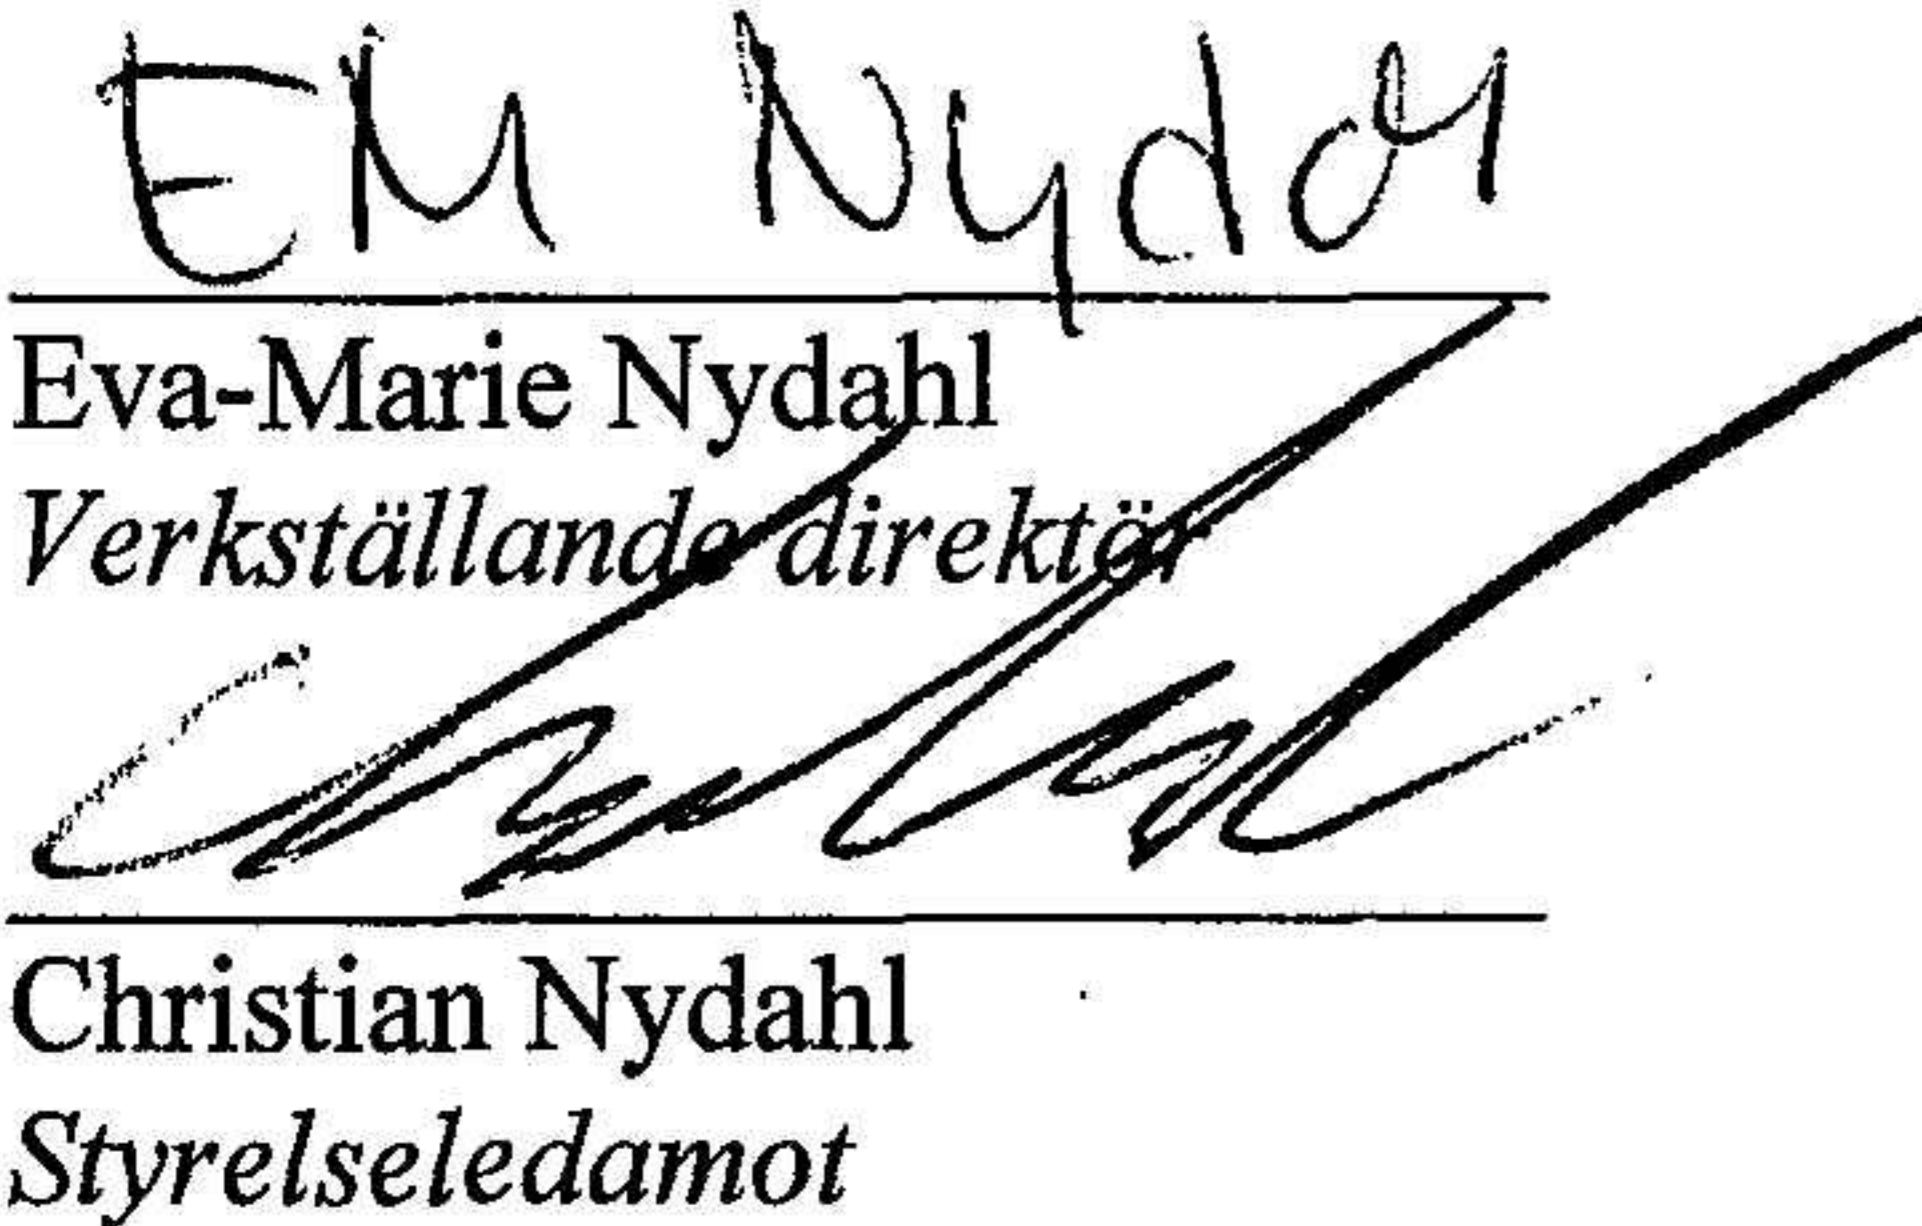 EM Nydahl
Eva-Marie Nydahl
Verkställande direktör
Christian Nydahl
Styrelseledamot